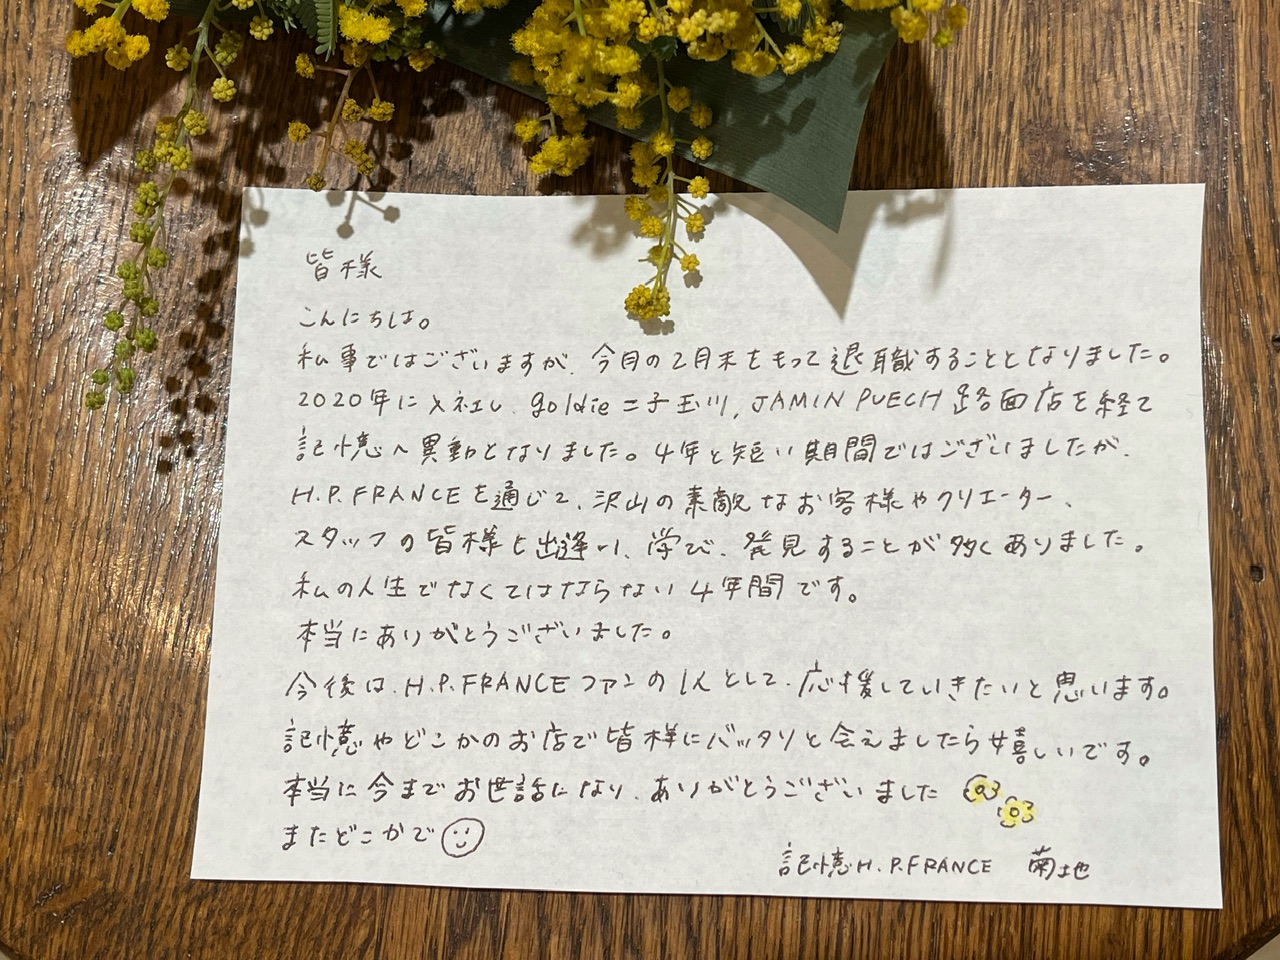 皆様
こんにちは。
私事ではございますが、今月の2月末をもって退職することとなりました。
2020年に入社し、goldie二子玉川、JAMIN PUECH 路面店を経て
記憶へ異動となりました。4年と短い期間ではございましたが、
H.P.FRANCEを通じて、沢山の素敵なお客様やクリエーター、
スタッフの皆様と出逢い、学び、発見することが多くありました。
私の人生でなくてはならない4年間です。
本当にありがとうございました。
今後は、H.P.FRANCEファンの1人として、応援していきたいと思います。
記憶やどこかのお店で皆様にバッタリと会えましたら嬉しいです。
本当に今までお世話になり、ありがとうございました
またどこかで
記憶H.P.FRANCE 菊地